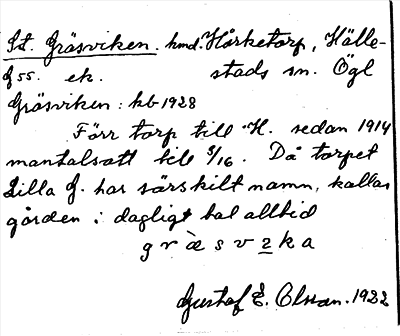 St. Gräsviken. hmd. Hårketorp, Hälle-
f 55. ek. stads sn. Ögl
Gräsviken: kb 1928
Förr torp till H. sedan 1914
mantalsatt till 3/16. Då torpet
Lilla G. har särskilt namn, kallas
gården i dagligt tal alltid
græsv2ka
Gustaf E. Olsson. 1922